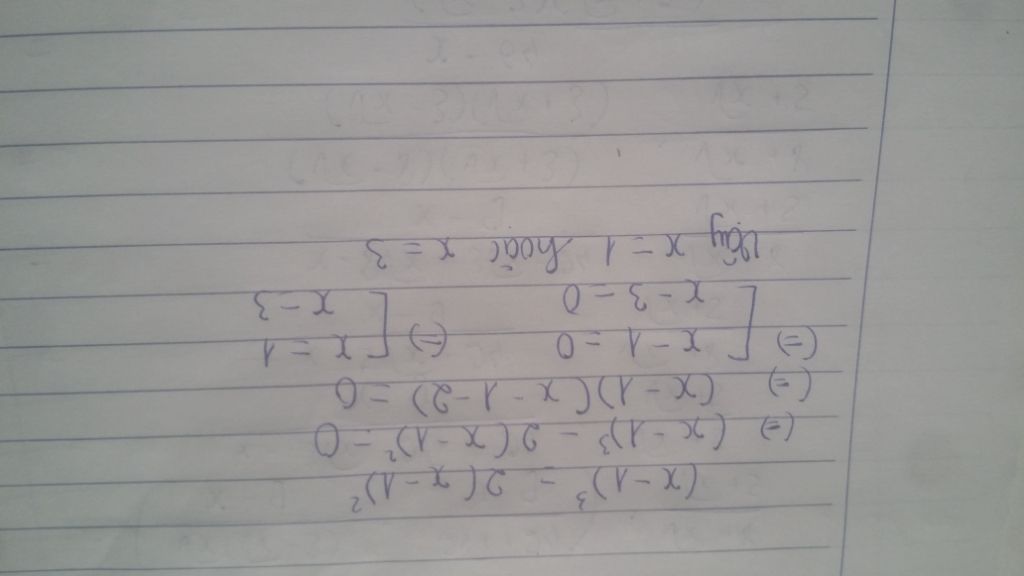 (x-1)³ - 2(x-1)²
(=) (x-1)³ - 2(x-1)² = 0
(=) (x-1)(x-1-2) = 0
(=) [ x-1 = 0 (=) [ x = 1
x-3 = 0 x = 3
Vậy x = 1 hoặc x = 3